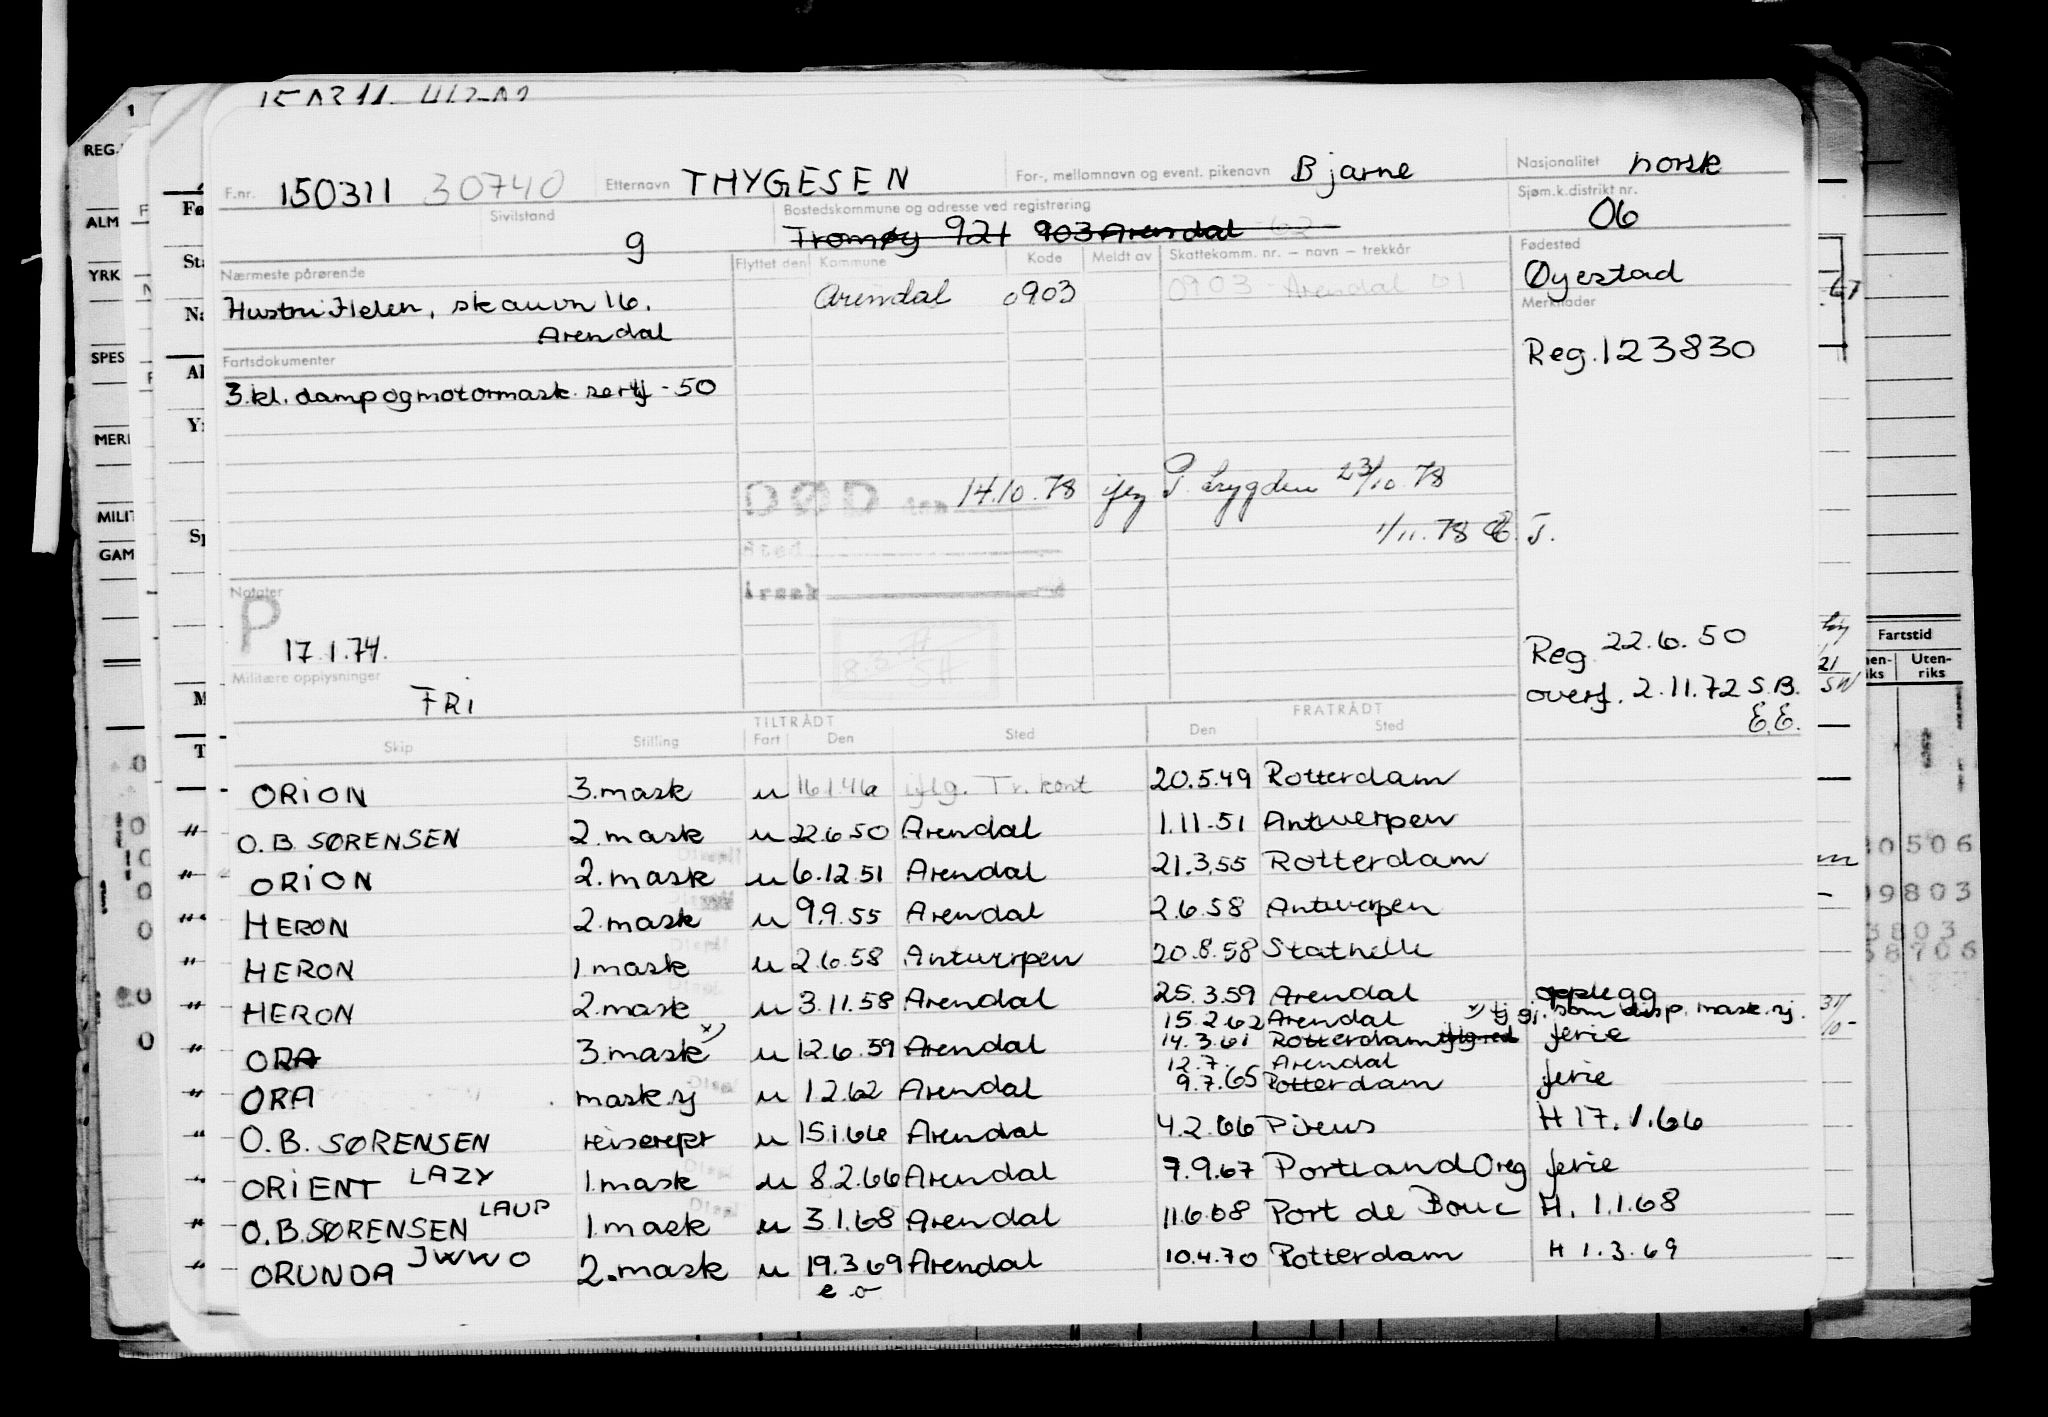 F.nr. 150311 30740 Etternavn THYGESEN For-, mellomnavn og event. pikenavn Bjarne Nasjonalitet norsk
Sivilstand g Bostedskommune og adresse ved registrering Tromøy 921 903 Arendal Sjøm.k.distrikt nr. 06
Nærmeste pårørende Flyttet den Kommune Kode Meldt av Skattekomm. nr. – navn – trekkår Fødested
Hustru Helen, skauvn 16. Arendal 0903 0903 Arendal 01 Øyestad
Arendal Merknader
Fartsdokumenter Reg. 123830
3.kl. damp og motormask. sertf -50
DØD den 14.10.78 23/10.78
Sted 1/11.78
Årsak
Notater
P
17.1.74. Reg 22.6.50
Militære opplysninger overf. 2.11.72 S.B.
FRI E.E.
TILTRÅDT FRATRÅDT
Skip Stilling Fart Den Sted Den Sted
ORION 3.mask u 16.1.46 iflg. Tr. kont 20.5.49 Rotterdam
" O.B. SØRENSEN 2.mask u 22.6.50 Arendal 1.11.51 Antwerpen
" ORION 2.mask u 6.12.51 Arendal 21.3.55 Rotterdam
" HERON 2.mask u 9.9.55 Arendal 2.6.58 Antwerpen
" HERON 1 mask u 2.6.58 Antwerpen 20.8.58 Stathelle
" HERON 2.mask u 3.11.58 Arendal 25.3.59 Arendal opplegg
15.2.62 Arendal x) tj gj. som disp. mask.sj.
" ORA 3.mask x) u 12.6.59 Arendal 14.3.61 Rotterdam ferie
12.7. Arendal
" ORA mask.sj u 1.2.62 Arendal 9.7.65 Rotterdam ferie
" O.B. SØRENSEN reiserepr u 15.1.66 Arendal 4.2.66 Pireus H 17.1.66
" ORIENT LAZY 1.mask u 8.2.66 Arendal 7.9.67 Portland Oreg ferie
" O.B.SØRENSEN LAUP 1.mask u 3.1.68 Arendal 11.6.68 Port de Bouc H. 1.1.68
" ORUNDA JWWO 2.mask u 19.3.69 Arendal 10.4.70 Rotterdam H 1.3.69
e o
REG.
ALM
YRK
SPES
MERI
MILIT
GAM
Fartstid
Uten-
riks